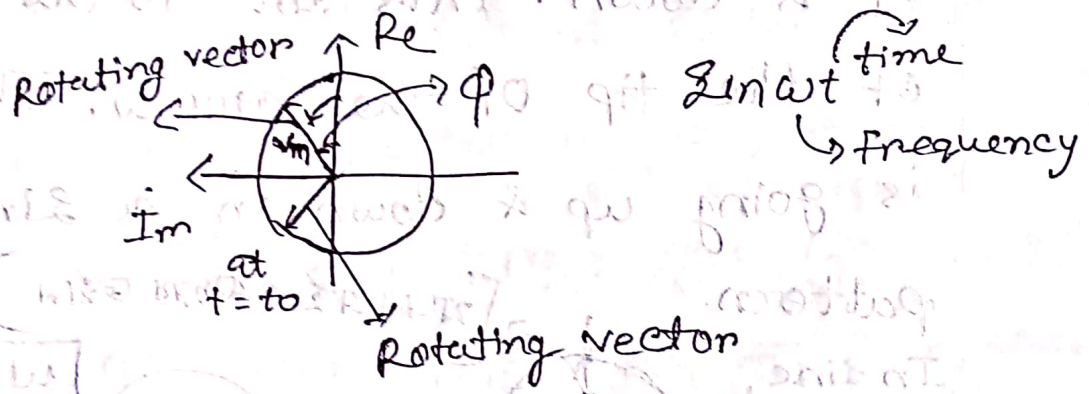 Re
Rotating vector
φ
Vm
Im
at
t = to
Rotating vector
Sin ωt
time
Frequency